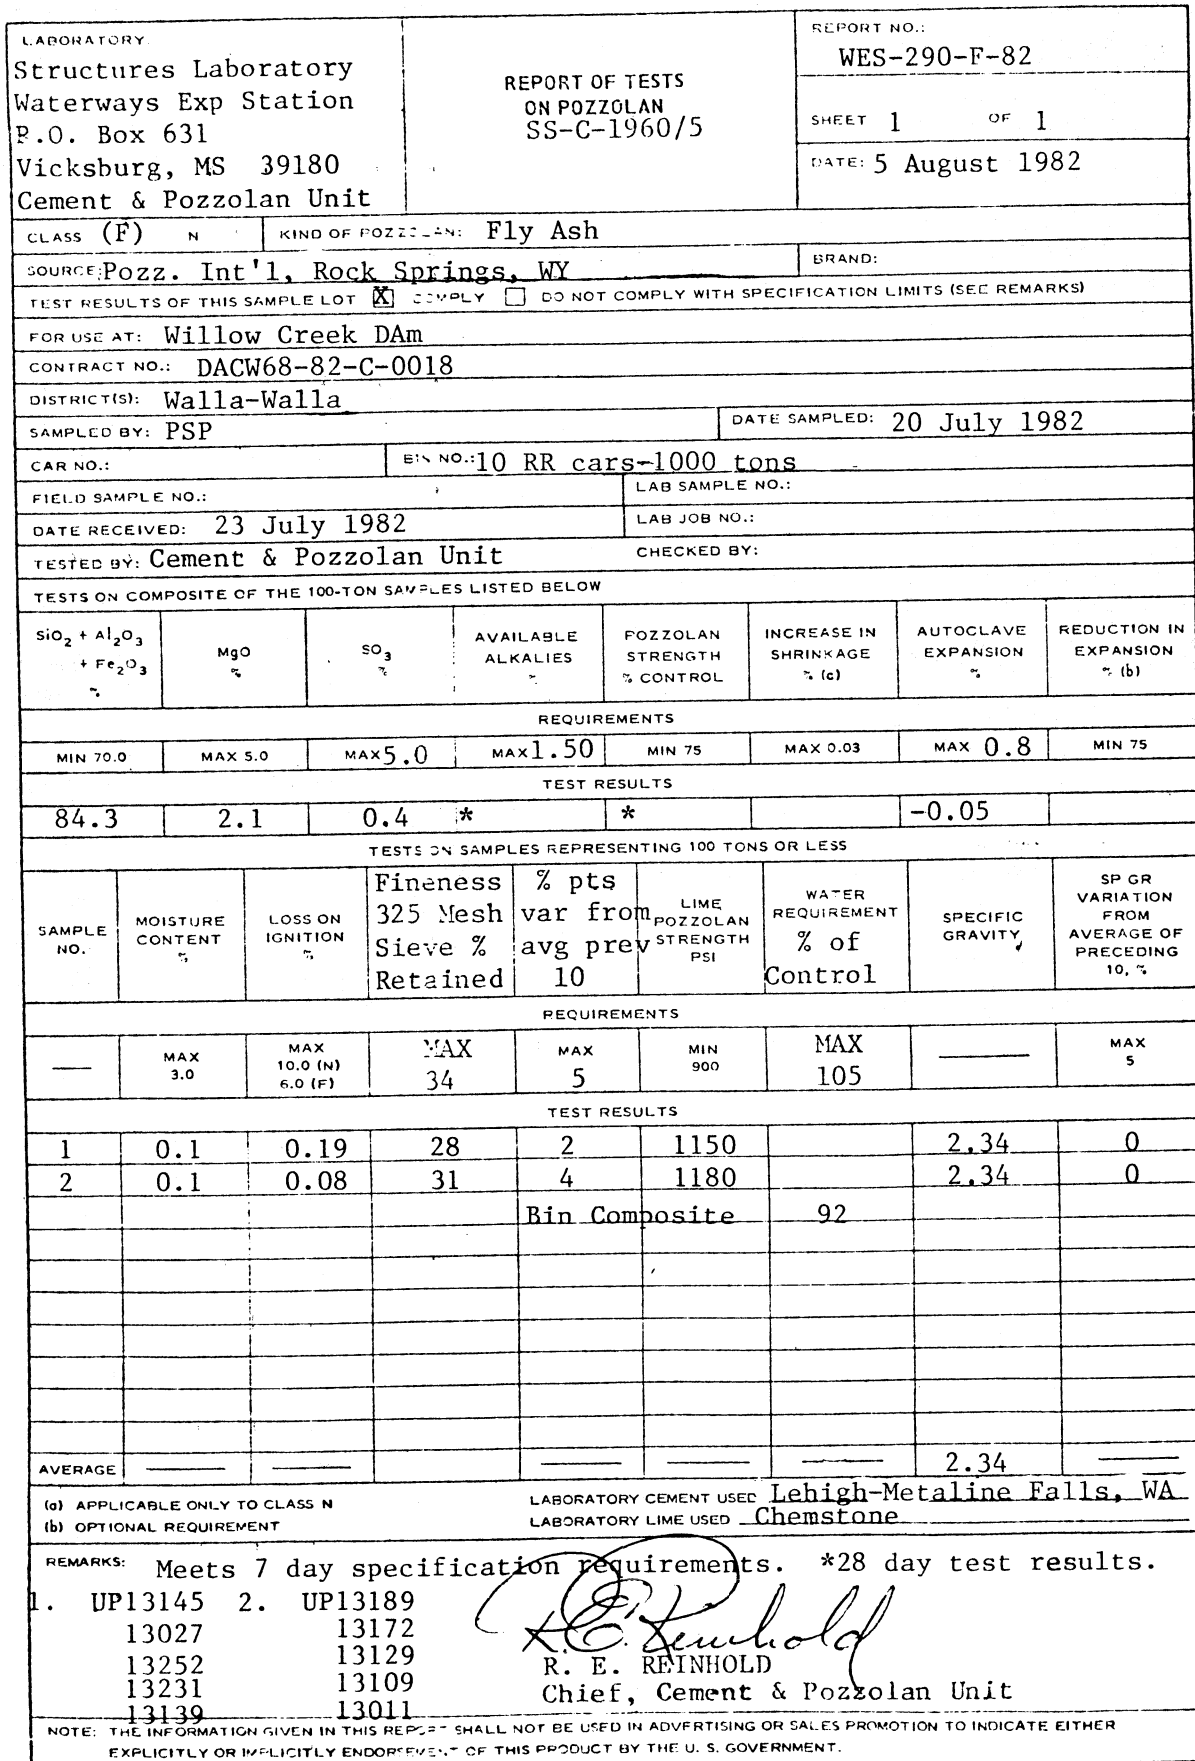 LABORATORY
Structures Laboratory
Waterways Exp Station
P.O. Box 631
Vicksburg, MS 39180
Cement & Pozzolan Unit
REPORT OF TESTS
ON POZZOLAN
SS-C-1960/5
REPORT NO.:
WES-290-F-82
SHEET 1 OF 1
DATE: 5 August 1982
CLASS (F) N
KIND OF POZZOLAN: Fly Ash
SOURCE: Pozz. Int'l, Rock Springs, WY
BRAND:
TEST RESULTS OF THIS SAMPLE LOT X COMPLY DO NOT COMPLY WITH SPECIFICATION LIMITS (SEE REMARKS)
FOR USE AT: Willow Creek DAm
CONTRACT NO.: DACW68-82-C-0018
DISTRICT(S): Walla-Walla
SAMPLED BY: PSP
DATE SAMPLED: 20 July 1982
CAR NO.:
BIN NO.: 10 RR cars-1000 tons
FIELD SAMPLE NO.:
LAB SAMPLE NO.:
DATE RECEIVED: 23 July 1982
LAB JOB NO.:
TESTED BY: Cement & Pozzolan Unit
CHECKED BY:
TESTS ON COMPOSITE OF THE 100-TON SAMPLES LISTED BELOW
SiO2 + Al2O3
+ Fe2O3
%
MgO
%
SO3
%
AVAILABLE
ALKALIES
%
POZZOLAN
STRENGTH
% CONTROL
INCREASE IN
SHRINKAGE
% (c)
AUTOCLAVE
EXPANSION
%
REDUCTION IN
EXPANSION
% (b)
REQUIREMENTS
MIN 70.0 MAX 5.0 MAX 5.0 MAX 1.50 MIN 75 MAX 0.03 MAX 0.8 MIN 75
TEST RESULTS
84.3 2.1 0.4 * * -0.05
TESTS ON SAMPLES REPRESENTING 100 TONS OR LESS
SAMPLE
NO.
MOISTURE
CONTENT
%
LOSS ON
IGNITION
%
Fineness
325 Mesh
Sieve %
Retained
% pts
var from
avg prev
10
LIME
POZZOLAN
STRENGTH
PSI
WATER
REQUIREMENT
% of
Control
SPECIFIC
GRAVITY
SP GR
VARIATION
FROM
AVERAGE OF
PRECEDING
10, %
REQUIREMENTS
MAX
3.0
MAX
10.0 (N)
6.0 (F)
MAX
34
MAX
5
MIN
900
MAX
105
MAX
5
TEST RESULTS
1 0.1 0.19 28 2 1150 2.34 0
2 0.1 0.08 31 4 1180 2.34 0
Bin Composite 92
AVERAGE 2.34
(a) APPLICABLE ONLY TO CLASS N
(b) OPTIONAL REQUIREMENT
LABORATORY CEMENT USED Lehigh-Metaline Falls, WA
LABORATORY LIME USED Chemstone
REMARKS: Meets 7 day specification requirements. *28 day test results.
1. UP13145 2. UP13189
13027 13172
13252 13129
13231 13109
13139 13011
R. E. Reinhold
R. E. REINHOLD
Chief, Cement & Pozzolan Unit
NOTE: THE INFORMATION GIVEN IN THIS REPORT SHALL NOT BE USED IN ADVERTISING OR SALES PROMOTION TO INDICATE EITHER
EXPLICITLY OR IMPLICITLY ENDORSEMENT OF THIS PRODUCT BY THE U. S. GOVERNMENT.